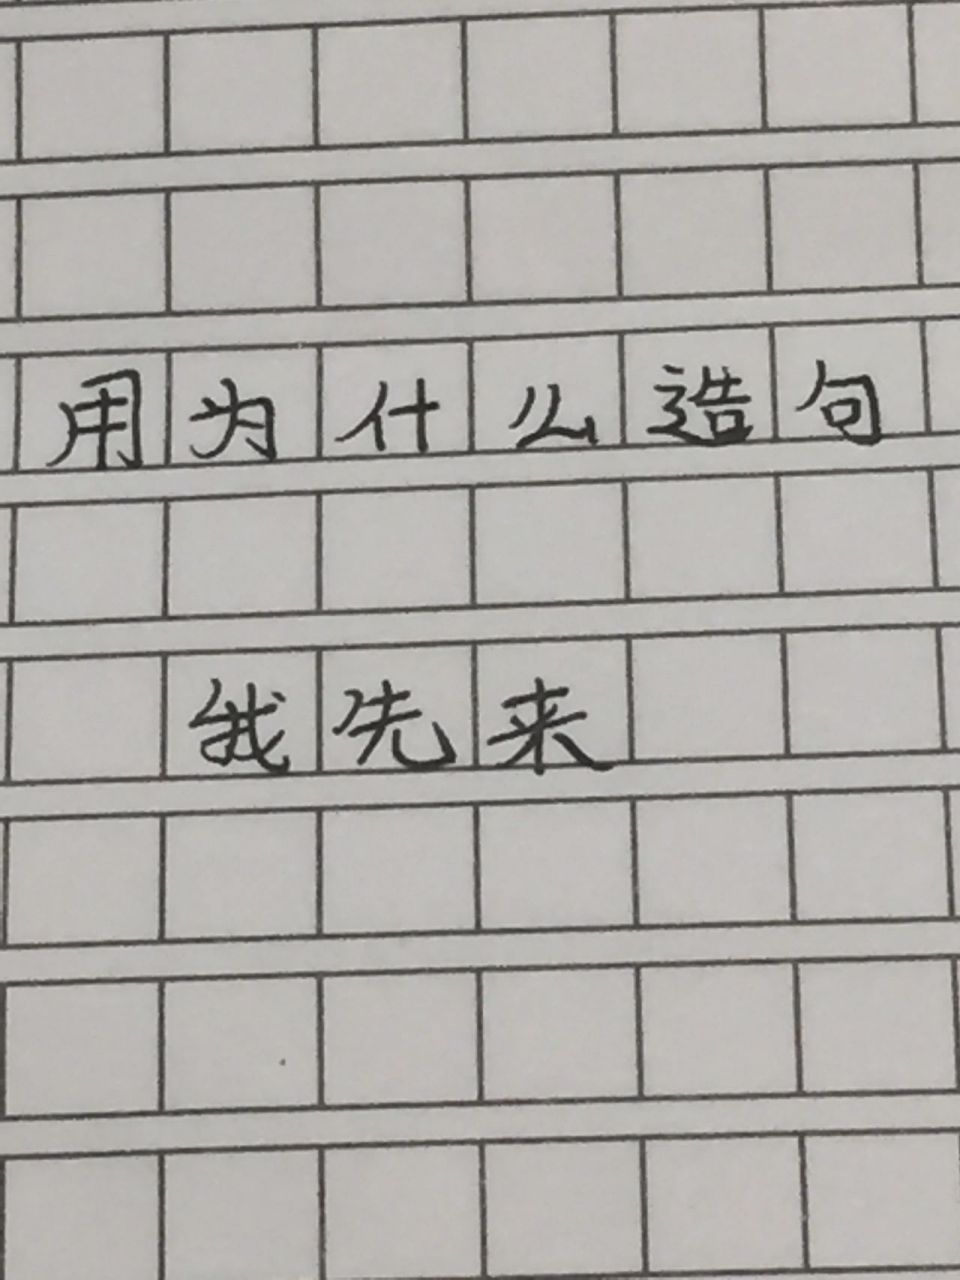 用为什么造句
我先来